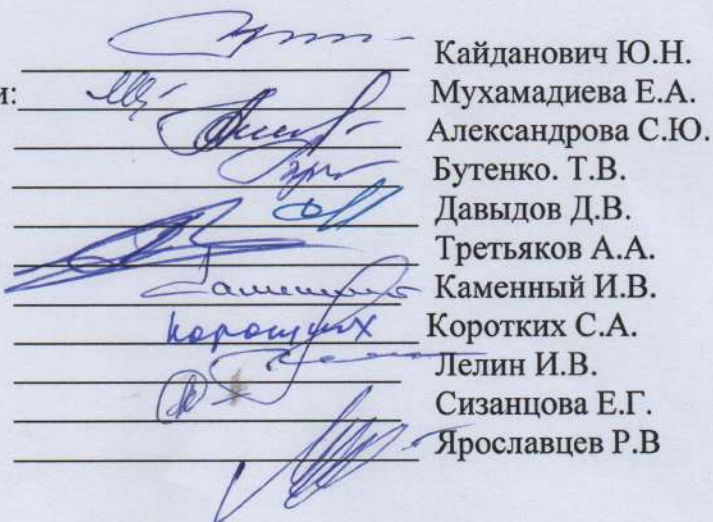 Кайданович Ю.Н.
и: Мухамадиева Е.А.
Александрова С.Ю.
Бутенко. Т.В.
Давыдов Д.В.
Третьяков А.А.
Каменный И.В.
Коротких Коротких С.А.
Лелин И.В.
Сизанцова Е.Г.
Ярославцев Р.В